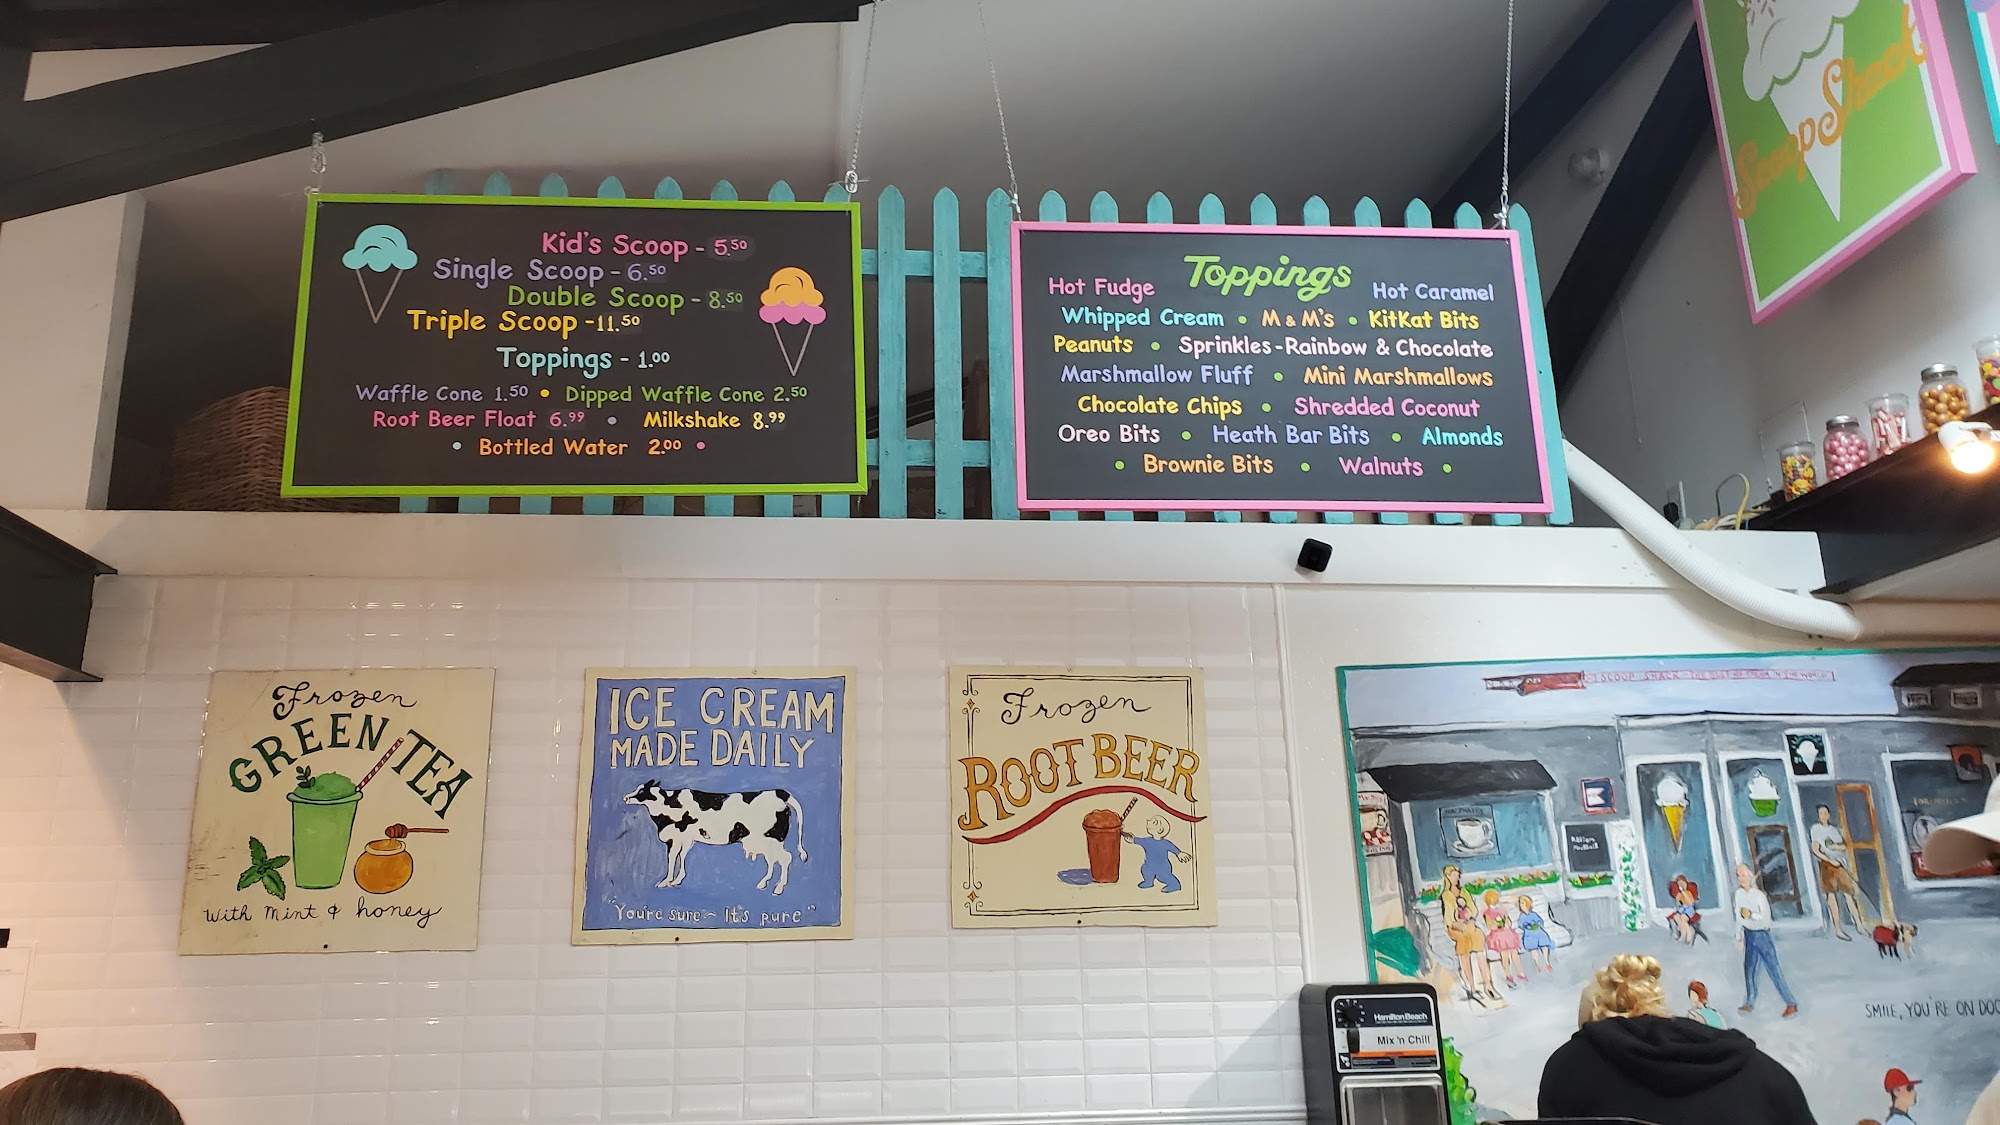 Kid's Scoop - 5.50
Single Scoop - 6.50
Double Scoop - 8.50
Triple Scoop - 11.50
Toppings - 1.00
Waffle Cone 1.50 • Dipped Waffle Cone 2.50
Root Beer Float 6.99 • Milkshake 8.99
• Bottled Water 2.00 •
Toppings
Hot Fudge
Hot Caramel
Whipped Cream • M & M's • KitKat Bits
Peanuts • Sprinkles - Rainbow & Chocolate
Marshmallow Fluff • Mini Marshmallows
Chocolate Chips • Shredded Coconut
Oreo Bits • Heath Bar Bits • Almonds
• Brownie Bits • Walnuts •
Scoop Shack
Frozen
GREEN TEA
with mint & honey
ICE CREAM
MADE DAILY
"You're sure~ It's pure"
Frozen
ROOT BEER
SCOOP SHACK THE BEST ICE CREAM IN THE WORLD
SMILE, YOU'RE ON DOC
Hamilton Beach
Mix 'n Chill